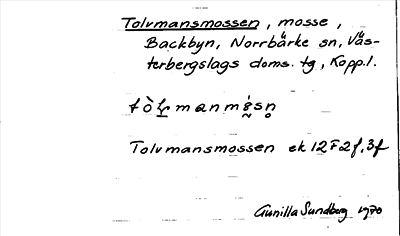 Tolvmansmossen, mosse,
Backbyn, Norrbärke sn, Väs-
terbergslags doms. tg, Kopp.l.
Tolvmansmossen ek 12F2f, 3f
Gunilla Sundberg 1970